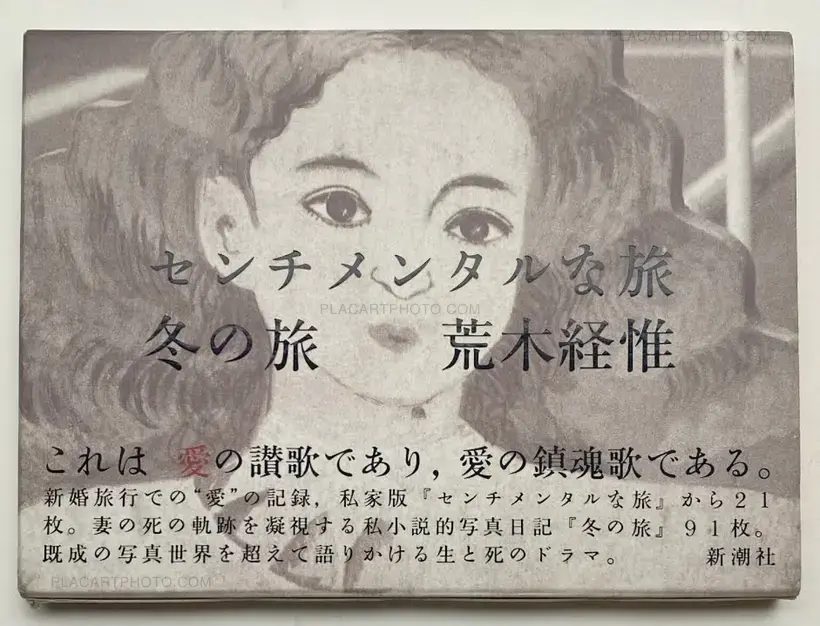 PLACARTPHOTO.COM
センチメンタルな旅
PLACARTPHOTO.COM
冬の旅 荒木経惟
これは 愛の讃歌であり,愛の鎮魂歌である。
新婚旅行での“愛”の記録,私家版『センチメンタルな旅』から21
枚。妻の死の軌跡を凝視する私小説的写真日記『冬の旅』91枚。
既成の写真世界を超えて語りかける生と死のドラマ。 新潮社
PLACARTPHOTO.COM